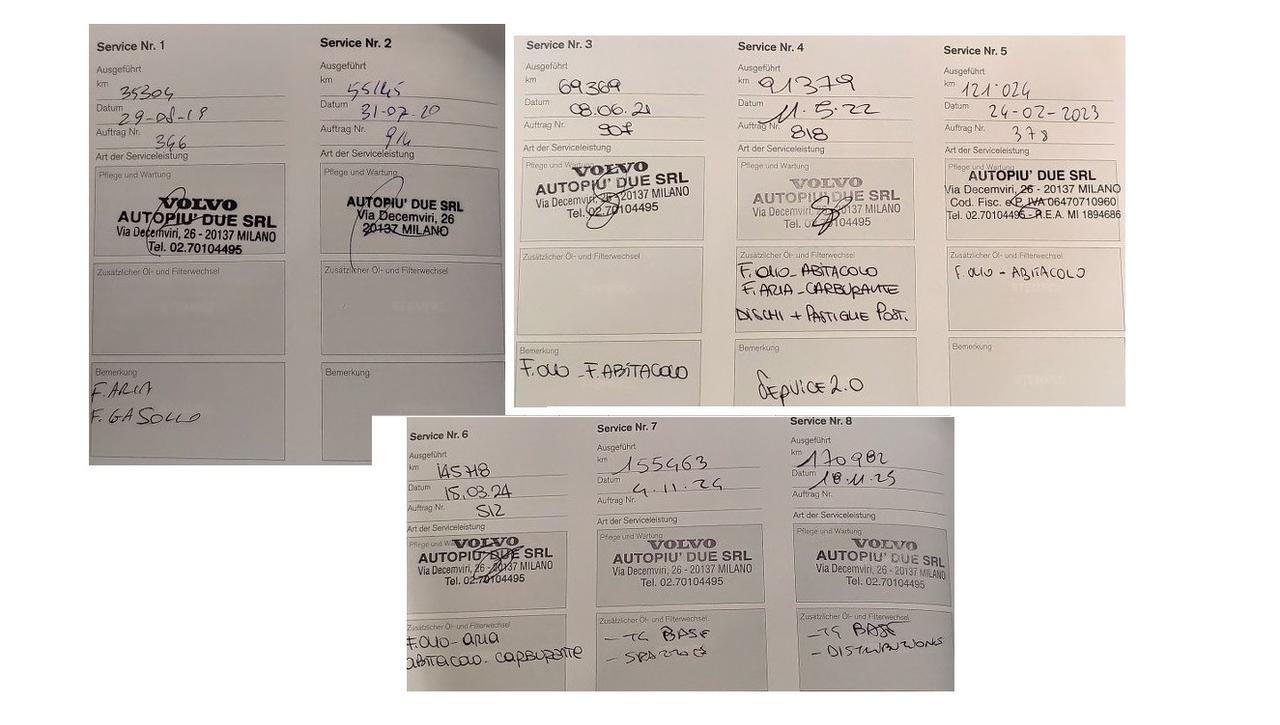 Service Nr. 1
Ausgeführt
km 35304
Datum 29-08-19
Auftrag Nr. 346
Art der Serviceleistung
Pflege und Wartung
VOLVO
AUTOPIU' DUE SRL
Via Decemviri, 26 - 20137 MILANO
Tel. 02.70104495
Zusätzlicher Öl- und Filterwechsel
Bemerkung
F. ARIA
F. GASOLIO
Service Nr. 2
Ausgeführt
km 55145
Datum 31-07-20
Auftrag Nr. 914
Art der Serviceleistung
Pflege und Wartung
AUTOPIU' DUE SRL
Via Decemviri, 26
20137 MILANO
Zusätzlicher Öl- und Filterwechsel
Bemerkung
Service Nr. 3
Ausgeführt
km 69369
Datum 08.06.21
Auftrag Nr. 907
Art der Serviceleistung
Pflege und Wartung
VOLVO
AUTOPIU' DUE SRL
Via Decemviri, 26 - 20137 MILANO
Tel. 02.70104495
Zusätzlicher Öl- und Filterwechsel
Bemerkung
F. OLIO - F. ABITACOLO
Service Nr. 4
Ausgeführt
km 91379
Datum 11.5.22
Auftrag Nr. 818
Art der Serviceleistung
Pflege und Wartung
VOLVO
AUTOPIU' DUE SRL
Via Decemviri, 26 - 20137 MILANO
Tel. 02.70104495
Zusätzlicher Öl- und Filterwechsel
F. OLIO - ABITACOLO
F. ARIA - CARBURANTE
DISCHI + PASTIGLIE POST.
Bemerkung
SERVICE 2.0
Service Nr. 5
Ausgeführt
km 121.024
Datum 24-02-2023
Auftrag Nr. 378
Art der Serviceleistung
Pflege und Wartung
AUTOPIU' DUE SRL
Via Decemviri, 26 - 20137 MILANO
Cod. Fisc. e P. IVA 06470710960
Tel. 02.70104495 - R.E.A. MI 1894686
Zusätzlicher Öl- und Filterwechsel
F. OLIO - ABITACOLO
Bemerkung
Service Nr. 6
Ausgeführt
km 145718
Datum 15.03.24
Auftrag Nr. 512
Art der Serviceleistung
Pflege und Wartung
VOLVO
AUTOPIU' DUE SRL
Via Decemviri, 26 - 20137 MILANO
Tel. 02.70104495
Zusätzlicher Öl- und Filterwechsel
F. OLIO - ARIA
ABITACOLO - CARBURANTE
Service Nr. 7
Ausgeführt
km 155463
Datum 4.11.24
Auftrag Nr.
Art der Serviceleistung
Pflege und Wartung
VOLVO
AUTOPIU' DUE SRL
Via Decemviri, 26 - 20137 MILANO
Tel. 02.70104495
Zusätzlicher Öl- und Filterwechsel
- TG BASE
Service Nr. 8
Ausgeführt
km 170982
Datum 18.11.25
Auftrag Nr.
Art der Serviceleistung
Pflege und Wartung
VOLVO
AUTOPIU' DUE SRL
Via Decemviri, 26 - 20137 MILANO
Tel. 02.70104495
Zusätzlicher Öl- und Filterwechsel
- TG BASE
- DISTRIBUZIONE